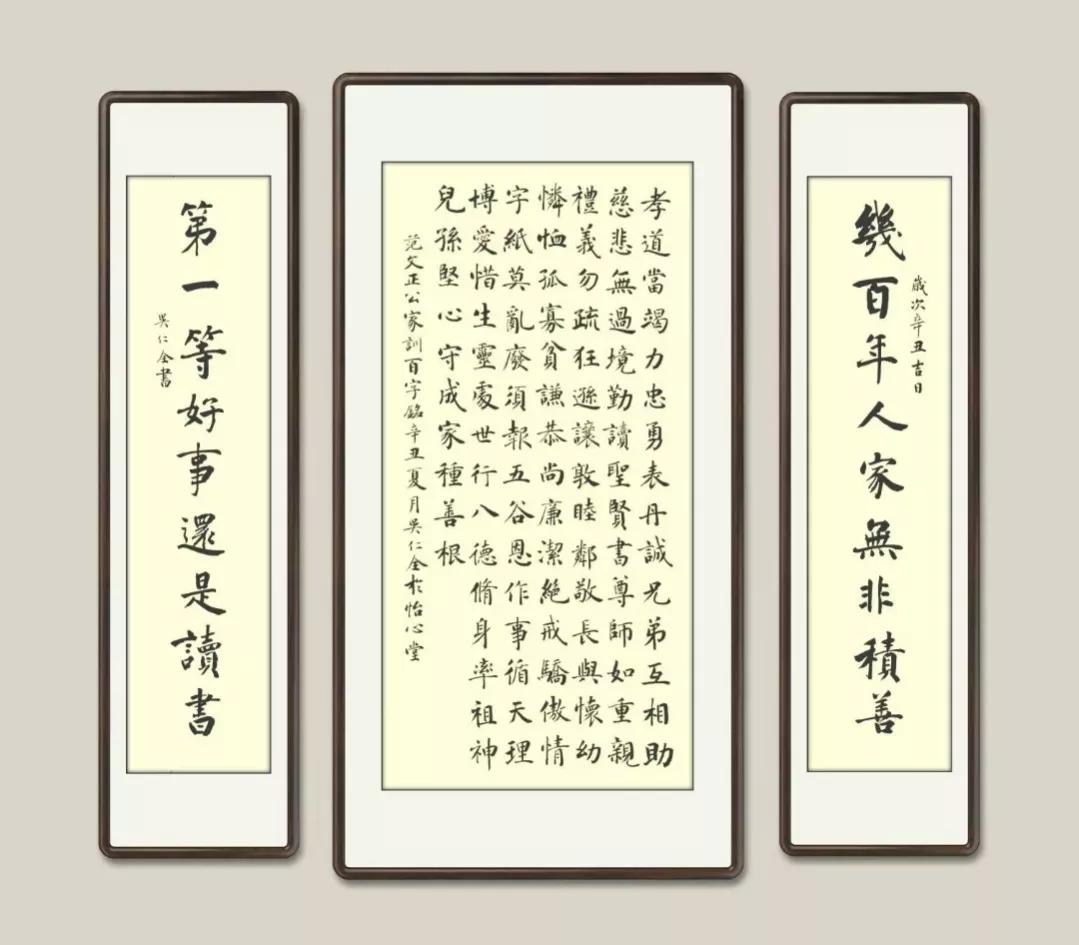 歲次辛丑吉日
幾百年人家無非積善
孝道當竭力忠勇表丹誠兄弟互相助
慈悲無過境勤讀聖賢書尊師如重親
禮義勿疏狂遜讓敦睦鄰敬長與懷幼
憐恤孤寡貧謙恭尚廉潔絕戒驕傲情
字紙莫亂廢須報五谷恩作事循天理
博愛惜生靈處世行八德脩身率祖神
兒孫堅心守成家種善根
范文正公家訓百字銘辛丑夏月吳仁全於怡心堂
第一等好事還是讀書
吳仁全書